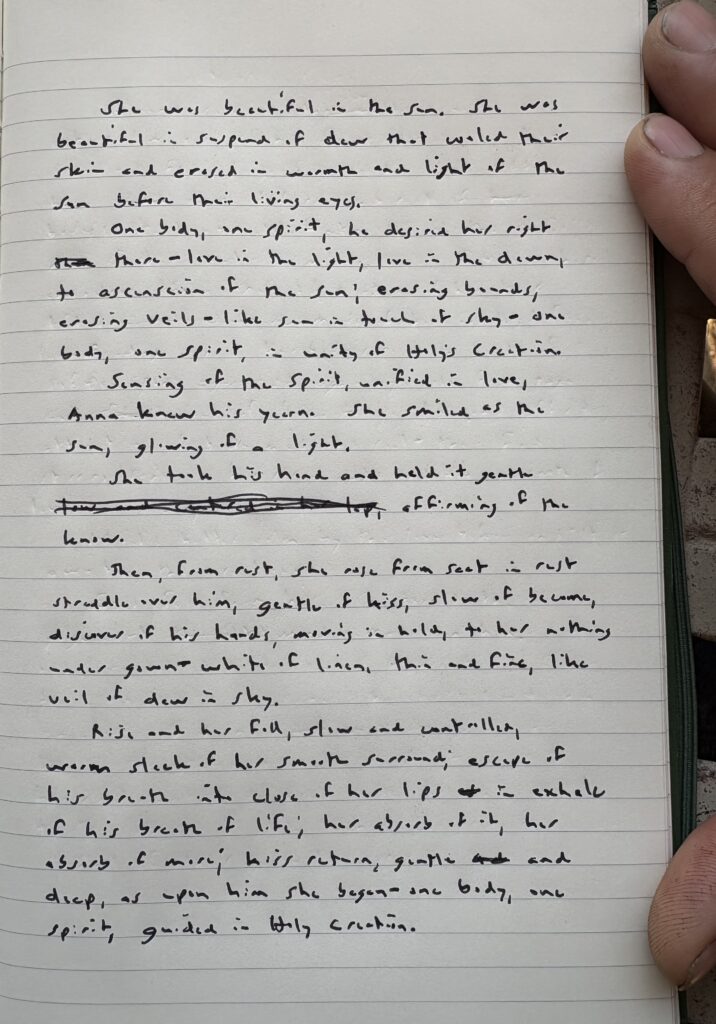 She was beautiful in the sun. She was
beautiful in suspend of dew that waled their
skin and erased in warmth and light of the
sun before their living eyes.
One body, one spirit, he desired her right
there - love in the light, love in the dawn,
to ascension of the sun; erasing bounds,
erasing veils - like sun in touch of sky - one
body, one spirit, in unity of Holy's Creation.
Sensing of the Spirit, unified in love,
Anna knew his yearn. She smiled as the
sun, glowing of a light.
She took his hand and held it gentle
affirming of the
know.
Then, from rest, she rose from seat in rest
straddle over him, gentle of kiss, slow of become,
discover of his hands, moving in hold, to her nothing
under gown - white of linen, thin and fine, like
veil of dew in sky.
Rise and her fall, slow and controlled,
warm sleek of her smooth surround; escape of
his breath into close of her lips in exhale
of his breath of life; her absorb of it, her
absorb of more; kiss return, gentle and
deep, as upon him she began - one body, one
spirit, guided in Holy Creation.